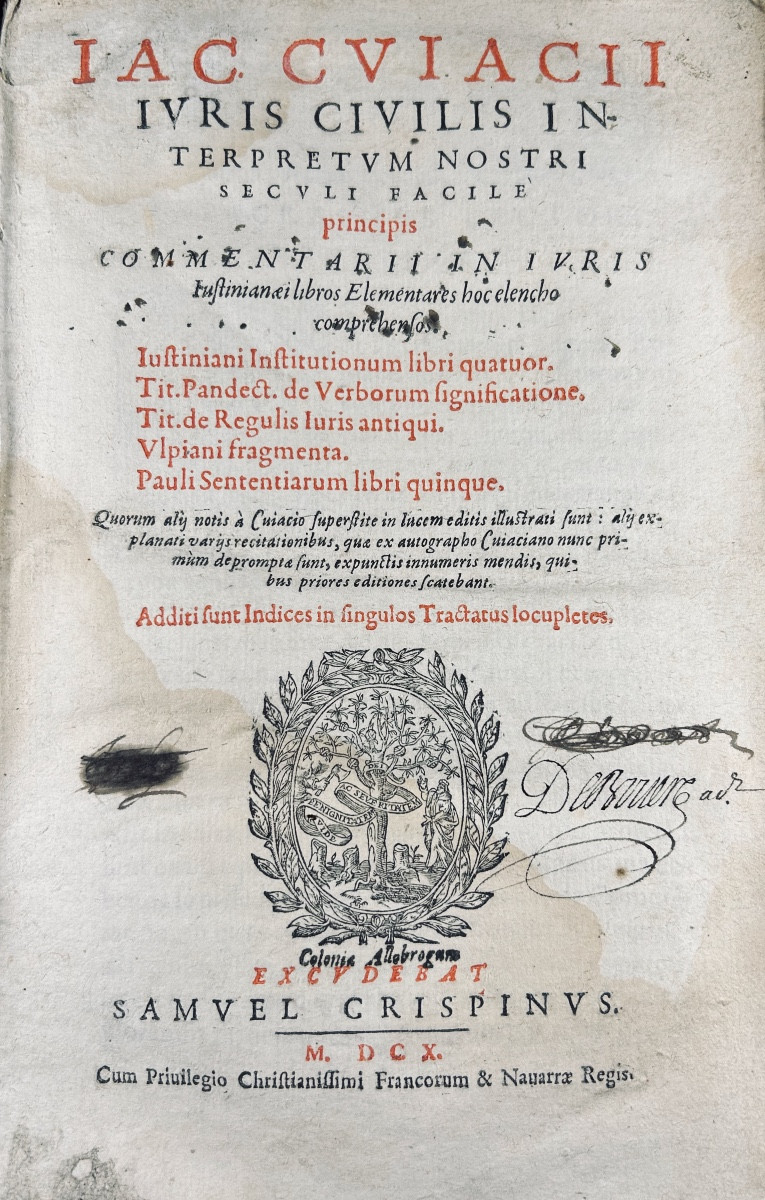 IAC. CVIACII
IVRIS CIVILIS IN-
TERPRETVM NOSTRI
SECVLI FACILE
principis
COMMENTARII IN IVRIS
Iustinianæi libros Elementares hoc elencho
comprehensos.
Iuſtiniani Inſtitutionum libri quatuor.
Tit.Pandect. de Verborum ſignificatione.
Tit.de Regulis Iuris antiqui.
Vlpiani fragmenta.
Pauli Sententiarum libri quinque.
Quorum alij notis à Cuiacio ſuperſtite in lucem editis illuſtrati ſunt : alij ex-
planati varijs recitationibus, quæ ex autographo Cuiaciano nunc pri-
mùm depromptæ ſunt, expunctis innumeris mendis, qui-
bus priores editiones ſcatebant.
Additi ſunt Indices in ſingulos Tractatus locupletes.
AC SEVERITATEM
BENIGNITATEM
VIDE
Colonia Allobrogum
EXCVDEBAT
SAMVEL CRISPINVS.
M. DCX.
Cum Priuilegio Chriſtianiſſimi Francorum & Nauarræ Regis.